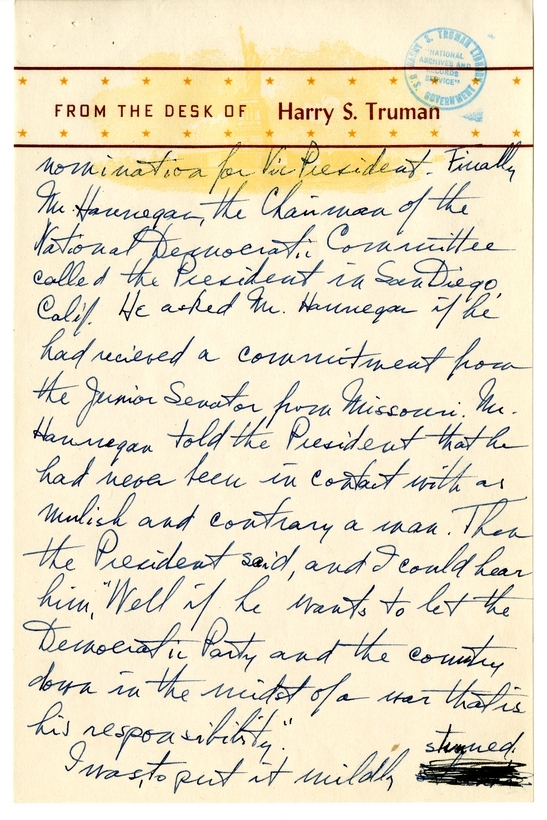 HARRY S. TRUMAN LIBRARY
"NATIONAL
ARCHIVES AND
RECORDS
SERVICE"
U.S. GOVERNMENT
FROM THE DESK OF Harry S. Truman
nomination for Vice President. Finally
Mr. Hannegan, the Chairman of the
National Democratic Committee
called the President in San Diego,
Calif. He asked Mr. Hannegan if he
had recieved a commitment from
the Junior Senator from Missouri. Mr.
Hannegan told the President that he
had never been in contact with as
mulish and contrary a man. Then
the President said, and I could hear
him, "Well if he wants to let the
Democratic Party and the country
down in the midst of a war that is
his responsibility."
I was, to put it mildly stunned.